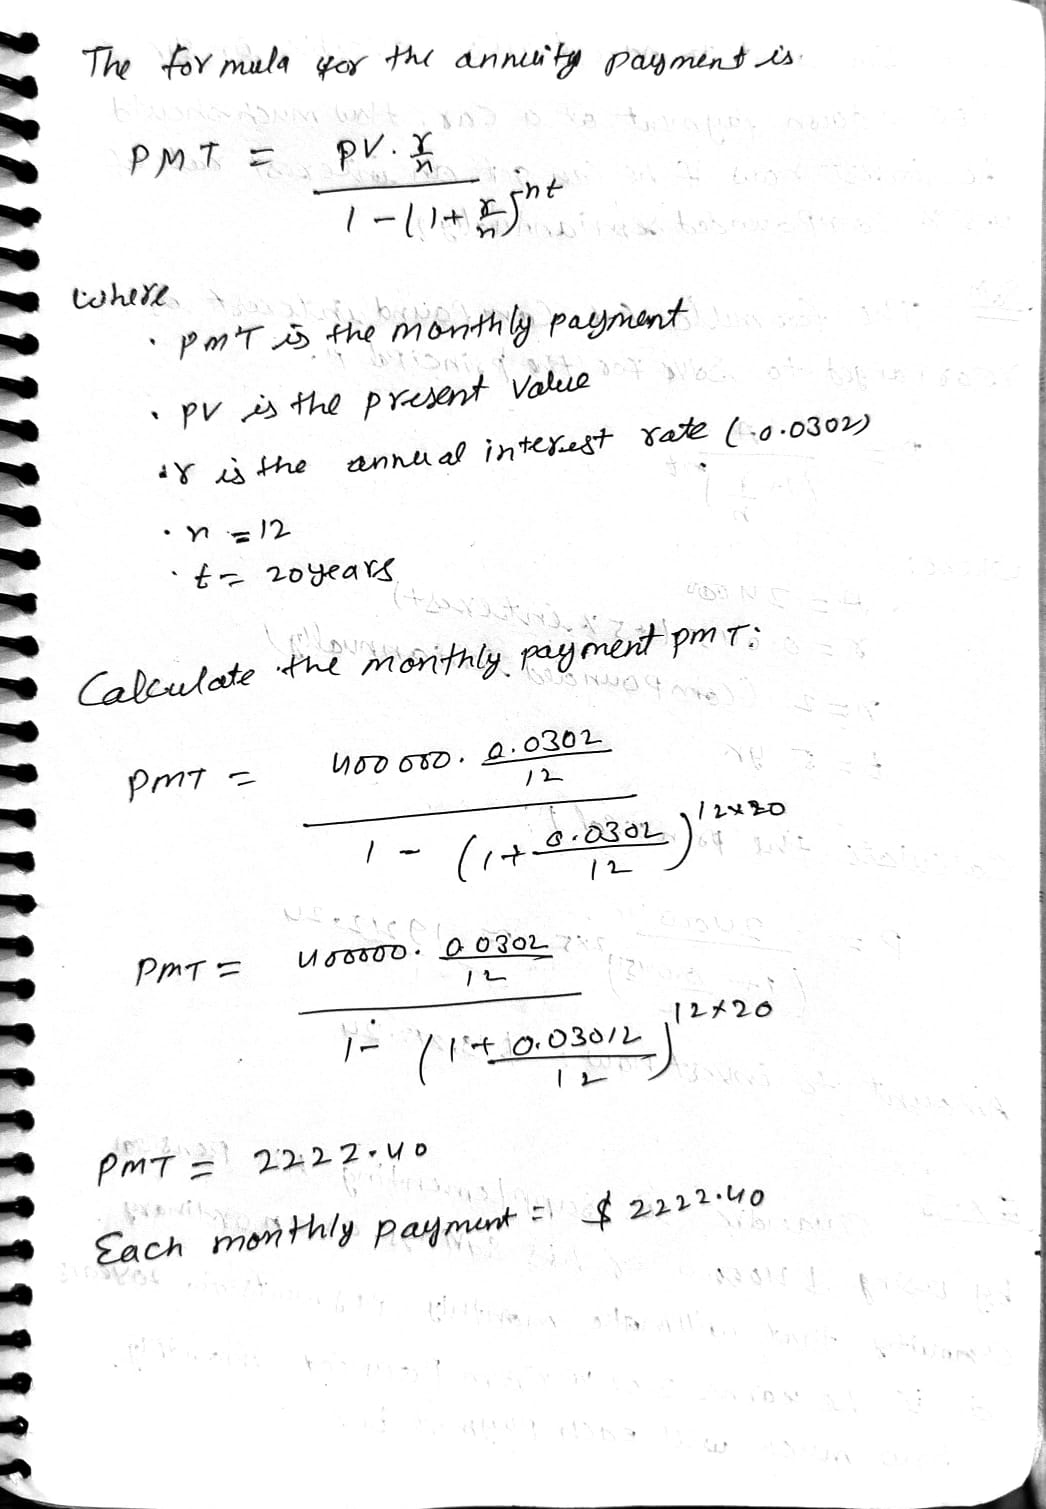 The formula for the annuity payment is
PMT = PV. r/n
1 - (1+ r/n)^-nt
where
. PMT is the monthly payment
. PV is the present value
. r is the annual interest rate (0.0302)
. n = 12
. t = 20years
Calculate the monthly payment PMT:
PMT = 400000. 0.0302/12
1 - (1+ 0.0302/12)^12×20
PMT = 400000. 0.0302/12
1- (1+ 0.03012/12)^12×20
PMT = 2222.40
Each monthly payment = $ 2222.40